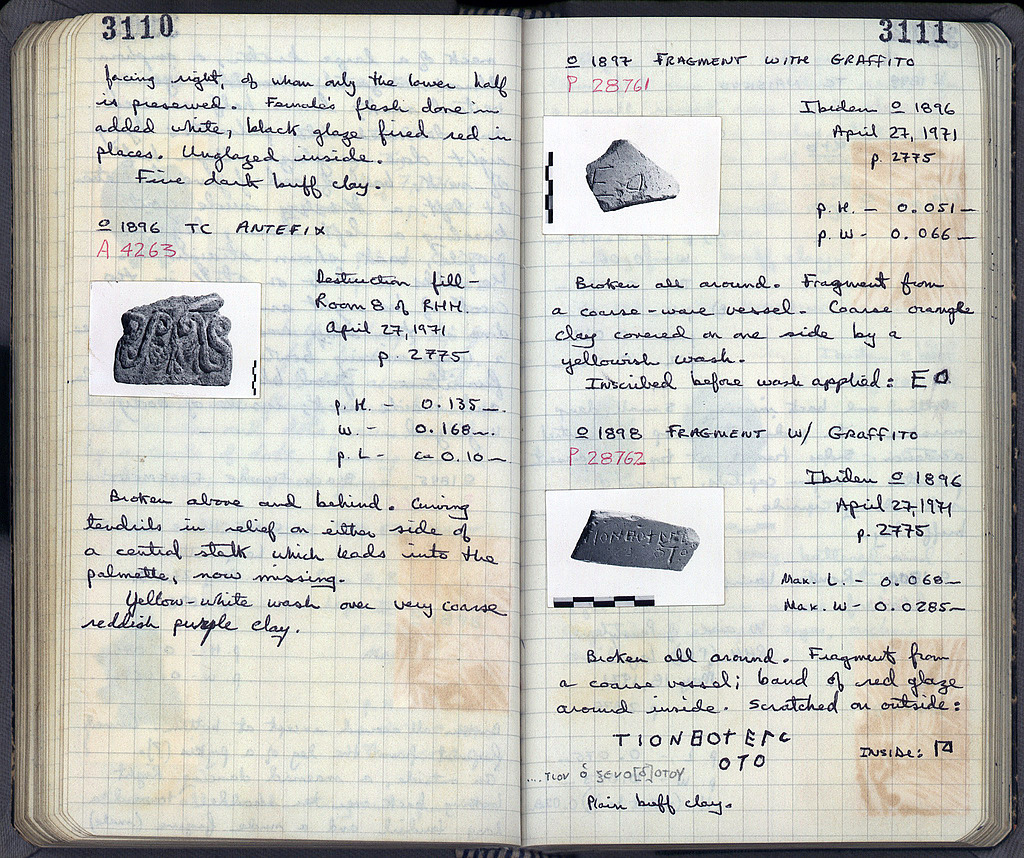 3110
facing right, of whom only the lower half
is preserved. Female's flesh done in
added white, black glaze fired red in
places. Unglazed inside.
Fine dark buff clay.
O 1896 TC ANTEFIX
A 4263
Destruction fill -
Room 8 of RHH.
April 27, 1971
p. 2775
p. H. - 0.135
W. - 0.168
p. L - ca 0.10
Broken above and behind. Curving
tendrils in relief on either side of
a central stalk which leads into the
palmette, now missing.
Yellow-white wash over very coarse
reddish purple clay.
3111
O 1897 FRAGMENT WITH GRAFFITO
P 28761
Ibidem O 1896
April 27, 1971
p. 2775
p. H. - 0.051
p. W - 0.066
Broken all around. Fragment from
a coarse-ware vessel. Coarse orange
clay covered on one side by a
yellowish wash.
Inscribed before wash applied: EO
O 1898 FRAGMENT W/ GRAFFITO
P 28762
Ibidem O 1896
April 27, 1971
p. 2775
Max. L. - 0.068
Max. W - 0.0285
Broken all around. Fragment from
a coarse vessel; band of red glaze
around inside. Scratched on outside:
ΤΙΟΝ
ΟΤΟ
INSIDE:
....τιον ὁ ξενο[δ]οτου
Plain buff clay.